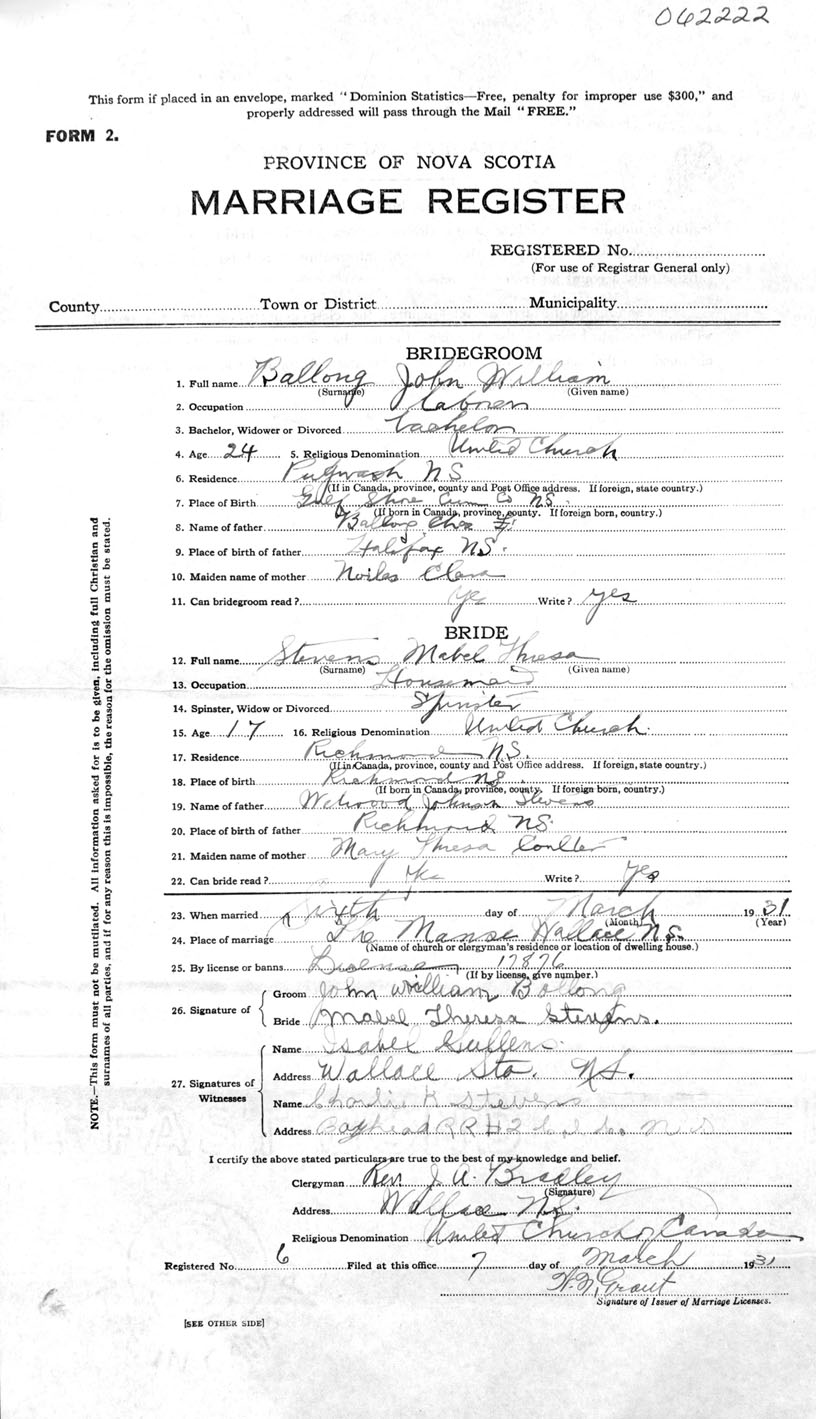 062222
This form if placed in an envelope, marked "Dominion Statistics—Free, penalty for improper use $300," and
properly addressed will pass through the Mail "FREE."
FORM 2.
PROVINCE OF NOVA SCOTIA
MARRIAGE REGISTER
REGISTERED No.
(For use of Registrar General only)
County Town or District Municipality
BRIDEGROOM
1. Full name Ballong John William
(Surname) (Given name)
2. Occupation Laborer
3. Bachelor, Widower or Divorced bachelor
4. Age 24 5. Religious Denomination United Church
6. Residence Pugwash NS
(If in Canada, province, county and Post Office address. If foreign, state country.)
7. Place of Birth Gulf Shore Cum Co NS.
(If born in Canada, province, county. If foreign born, country.)
8. Name of father Ballong Chas
9. Place of birth of father Halifax NS.
10. Maiden name of mother Noiles Clara
11. Can bridegroom read? yes Write? yes
BRIDE
12. Full name Stevens Mabel Thresa
(Surname) (Given name)
13. Occupation Housemaid
14. Spinster, Widow or Divorced Spinster
15. Age 17 16. Religious Denomination United Church.
17. Residence Richmond N.S.
(If in Canada, province, county and Post Office address. If foreign, state country.)
18. Place of birth Richmond NS
(If born in Canada, province, county. If foreign born, country.)
19. Name of father Johnson Stevens
20. Place of birth of father Richmond NS.
21. Maiden name of mother Mary Thresa Coulter
22. Can bride read? Yes Write? Yes
23. When married sixth day of March 1931
(Month) (Year)
24. Place of marriage The Manse Wallace N.S.
(Name of church or clergyman's residence or location of dwelling house.)
25. By license or banns License 17876
(If by license, give number.)
26. Signature of Groom John William Ballong
Bride Mabel Theresa Stevens.
27. Signatures of Witnesses
Name Isabel
Address Wallace Sta. N.S.
Name Charlie K Stevens
Address Bayhead RR #2 N.S
I certify the above stated particulars are true to the best of my knowledge and belief.
Clergyman Rev. J. A. Bradley
(Signature)
Address Wallace N.S.
Religious Denomination United Church of Canada
Registered No. 6 Filed at this office 7 day of March 1931
Grant
Signature of Issuer of Marriage Licenses.
[SEE OTHER SIDE]
NOTE.—This form must not be mutilated. All information asked for is to be given, including full Christian and
surnames of all parties, and if for any reason this is impossible, the reason for the omission must be stated.